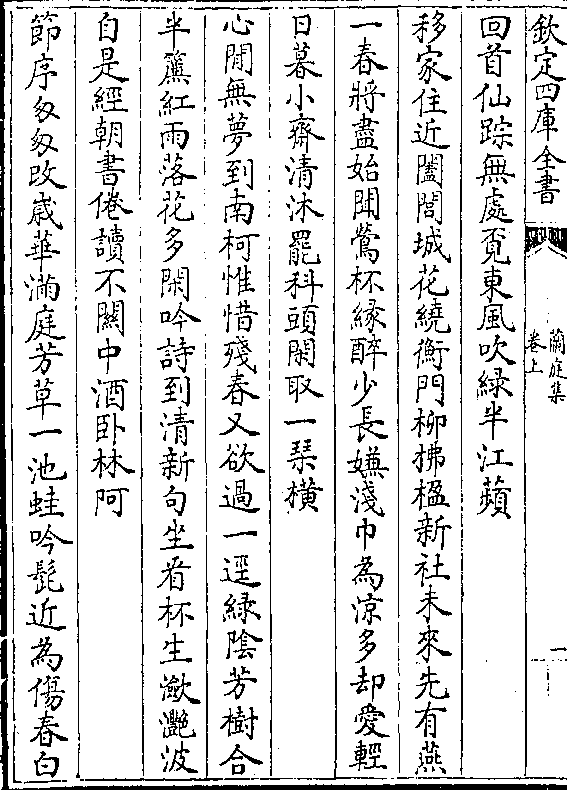 欽定四庫全書
蘭庭集
卷上
一
回首仙踪無處覔東風吹緑半江蘋
移家住近闔閭城花繞衡門柳拂楹新社未來先有燕
一春將盡始聞鶯杯縁醉少長嫌淺巾為涼多却愛輕
日暮小齋清沐罷科頭閑取一琹橫
心閒無夢到南柯惟惜殘春又欲過一逕緑陰芳樹合
半簾紅雨落花多閑吟詩到清新句坐看杯生瀲灧波
自是經朝書倦讀不關中酒卧林阿
節序匆匆改嵗華滿庭芳草一池蛙吟髭近為傷春白